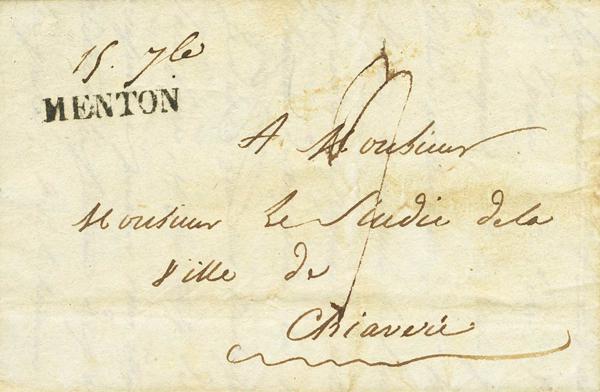 15. 7bre
MENTON
A Monsieur
Monsieur Le Sindic de la
Ville de
Chiaveri